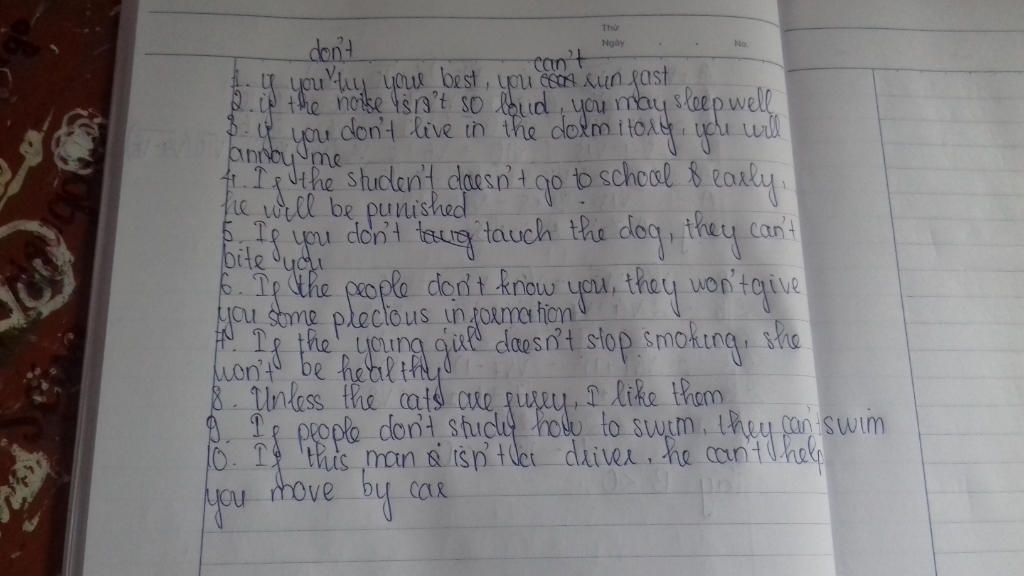 Thứ
Ngày No.
don't can't
1. if you try your best, you run fast
2. if the noise isn't so loud, you may sleep well
3. if you don't live in the dormitory, you will
annoy me
4. If the student doesn't go to school early,
he will be punished
5. If you don't touch the dog, they can't
bite you
6. If the people don't know you, they won't give
you some precious information
7. If the young girl doesn't stop smoking, she
won't be healthy
8. Unless the cats are furry, I like them
9. If people don't study how to swim, they can't swim
10. If this man isn't a driver, he can't help
you move by car